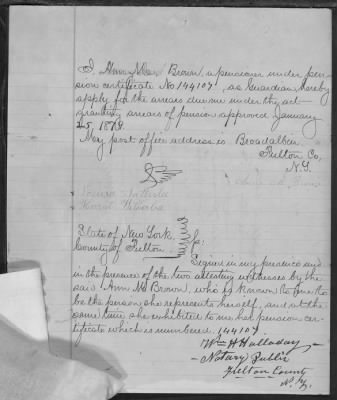 I, Ann M. Brown, a pensioner under pen-
sion certificate No 144107, as Guardian, hereby
apply for the arrears due me under the act
granting arrears of pension approved January
25, 1879.
My post office address is Broadalbin
Fulton Co,
N.Y.
State of New York,
County of Fulton ss:
Signed in my presence and
in the presence of the two attesting witnesses by the
said Ann M. Brown, who is known to me to
be the person she represents herself, and at the
same time she exhibited to me her pension cer-
tificate which is numbered 144107
Wm H Halladay
Notary Public
Fulton County
N.Y.